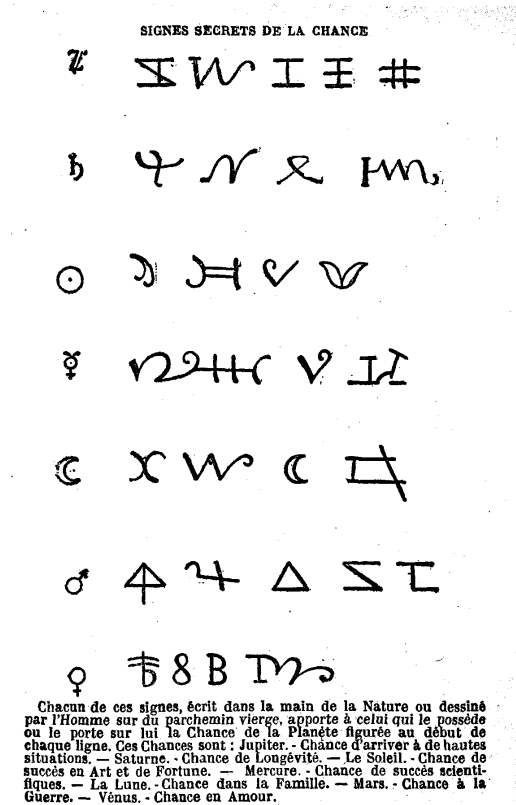 SIGNES SECRETS DE LA CHANCE
♃
♄
☉
☿
☾
♂
♀ 8 B
Chacun de ces signes, écrit dans la main de la Nature ou dessiné
par l'Homme sur du parchemin vierge, apporte à celui qui le possède
ou le porte sur lui la Chance de la Planète figurée au début de
chaque ligne. Ces Chances sont : Jupiter. - Chance d'arriver à de hautes
situations. — Saturne. - Chance de Longévité. — Le Soleil. - Chance de
succès en Art et de Fortune. — Mercure. - Chance de succès scienti-
fiques. — La Lune. - Chance dans la Famille. — Mars. - Chance à la
Guerre. — Vénus. - Chance en Amour.